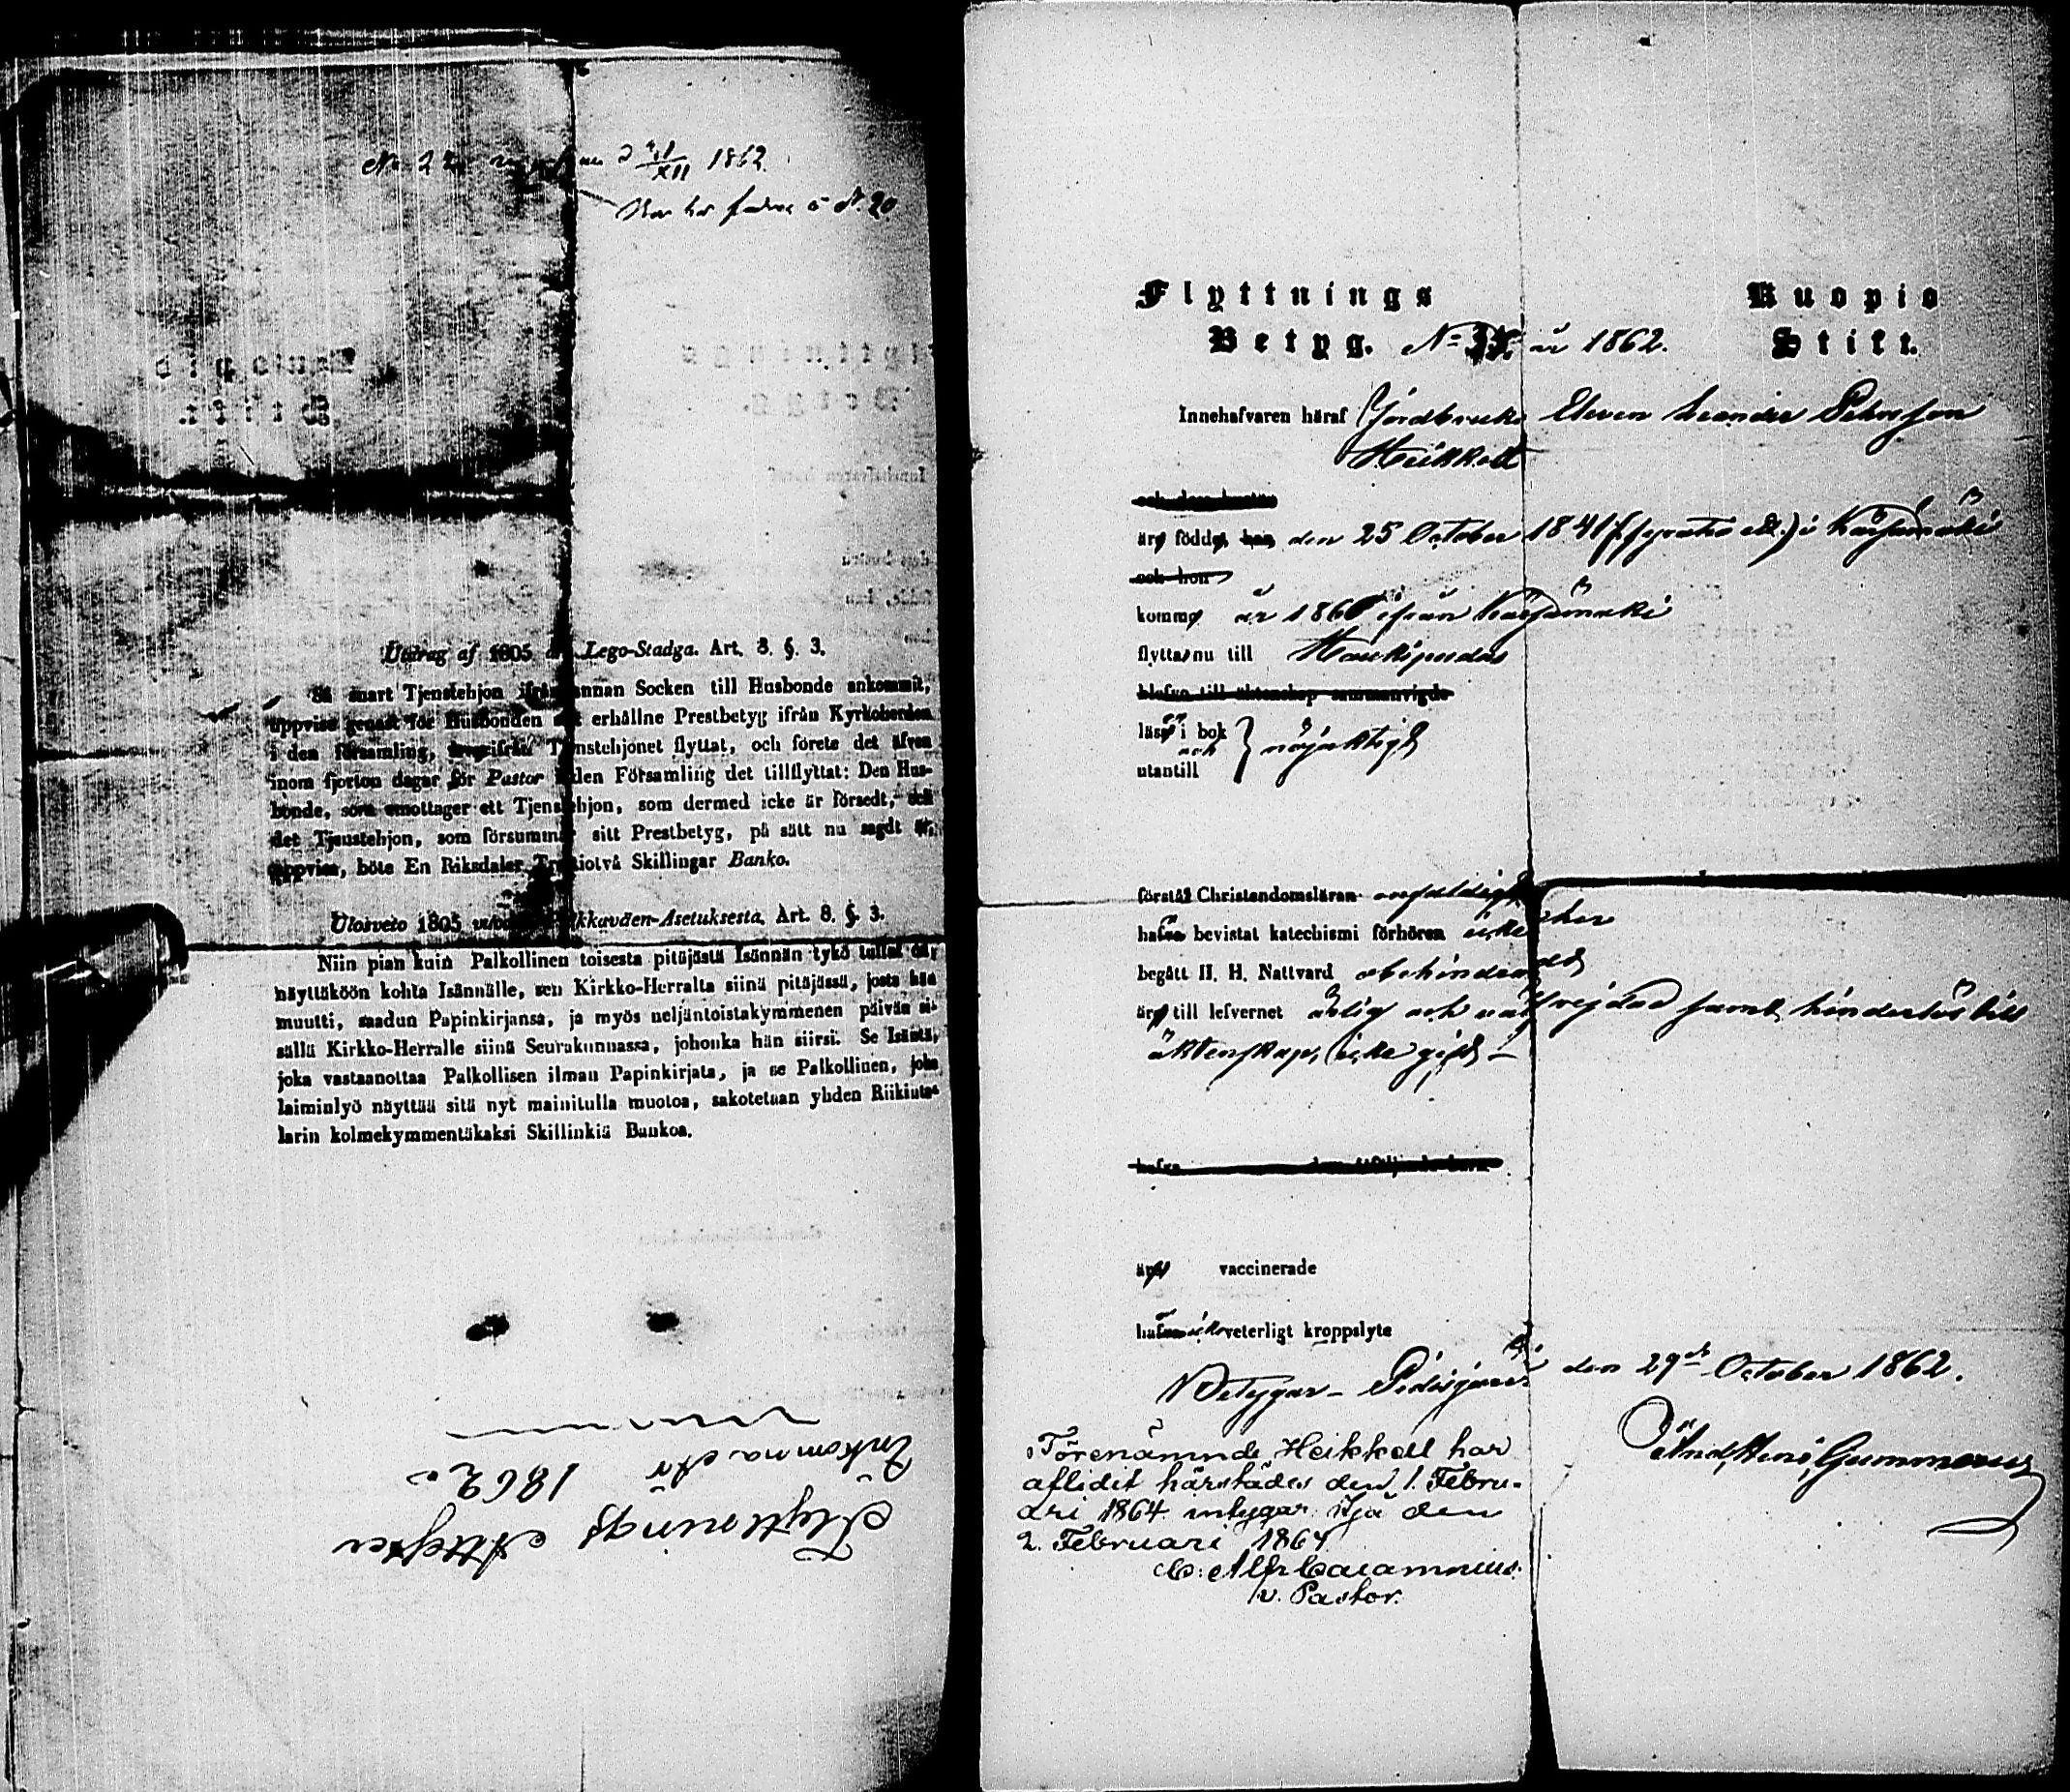 1862.
No 20
Utdrag af 1805 Lego-Stadga. Art. 8. §. 3.
Så snart Tjenstehjon ifrån annan Socken till Husbonde ankommit,
uppvise genast för Husbonden erhållne Prestbetyg ifrån Kyrkoherden
i den församling, Tjenstehjonet flyttat, och förete det äfven
inom fjorton dagar för Pastor i den Församling det tillflyttat: Den Hus-
bonde, som emottager ett Tjenstehjon, som dermed icke är försedt, och
det Tjenstehjon, som försummar sitt Prestbetyg, på sätt nu sagdt är,
uppvisa, böte En Riksdaler Trettiotvå Skillingar Banko.
Ulosveto 1805 Palkkaväen-Asetuksesta. Art. 8. §. 3.
Niin pian kuin Palkollinen toisesta pitäjästä Isännän tykö tullut on,
näyttäköön kohta Isännälle, sen Kirkko-Herralta siinä pitäjässä, josta hän
muutti, saadun Papinkirjansa, ja myös neljäntoistakymmenen päivän si-
sällä Kirkko-Herralle siinä Seurakunnassa, johonka hän siirsi. Se Isäntä,
joka vastaanottaa Palkollisen ilman Papinkirjata, ja se Palkollinen, joka
laiminlyö näyttää sitä nyt mainitulla muotoa, sakotetaan yhden Riikinta-
larin kolmekymmentäkaksi Skillinkiä Bankoa.
Flyttnings Attester
Inkomna År 1862.
Flyttnings Kuopio
Betyg. No år 1862. Stift.
Innehafvaren häraf Jordbruks Eleven Leander Pehrsson
Heikkell
och dess hustru
äro födde, han den 25 October 1841 (fyratio ett) i Kärsämäki
och hon
komme år 1860 ifrån Kärsämäki
flyttar nu till Haukipudas
blefvo till äktenskap sammanvigde
läser i bok
och } nöjaktigt
utantill
förstår Christendomsläran enfaldigt
hafva bevistat katechismi förhören icke
begått H. H. Nattvard obehindradt
äro till lefvernet ärlig och välfrejdad samt hinderlös till
äktenskap, icke gift
hafva dem åtföljande barn
äro vaccinerade
hafva icke veterligt kroppslyte
Betygar Pidisjärvi den 29de October 1862.
And. Henr. Gummerus
Förenämnde Heikkell har
aflidit härstädes den 1. Febru-
ari 1864 intygar Ijå den
2. Februari 1864
C: Alfr Calamnius.
v. Pastor.